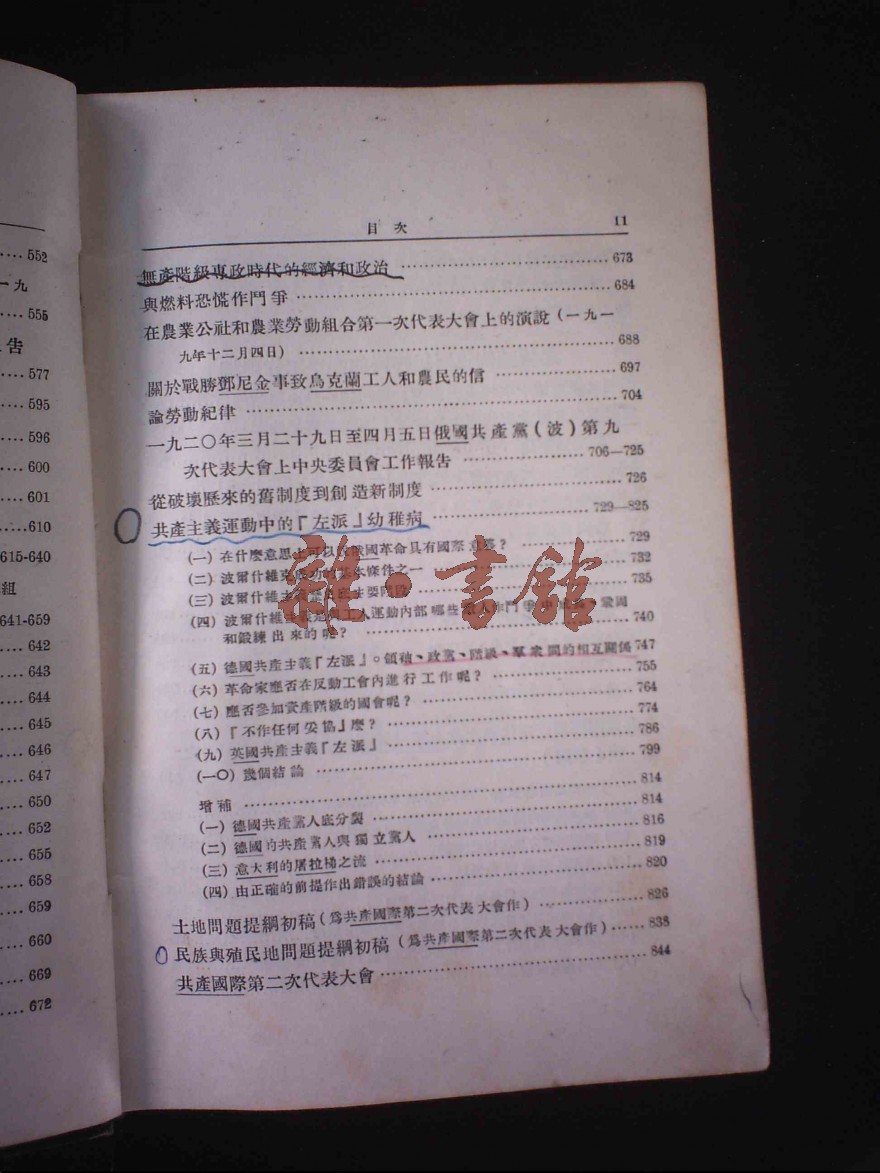 552
一九
555
告
577
595
596
600
601
610
615-640
組
641-659
642
643
644
645
646
647
650
652
655
658
659
660
669
672
目次 11
無產階級專政時代的經濟和政治 673
與燃料恐慌作鬥爭 684
在農業公社和農業勞動組合第一次代表大會上的演說(一九一
九年十二月四日) 688
關於戰勝鄧尼金事致烏克蘭工人和農民的信 697
論勞動紀律 704
一九二〇年三月二十九日至四月五日俄國共產黨(波)第九
次代表大會上中央委員會工作報告 706—725
從破壞歷來的舊制度到創造新制度 726
共產主義運動中的『左派』幼稚病 729—825
(一) 在什麼意思上可以說俄國革命具有國際意義? 729
(二) 波爾什維克成功的基本條件之一 732
(三) 波爾什維主義歷史底主要階段 735
(四) 波爾什維主義是與工人運動內部哪些敵人作鬥爭中成長、鞏固
和鍛練出來的呢? 740
(五) 德國共產主義『左派』。領袖、政黨、階級、羣衆間的相互關係 747
(六) 革命家應否在反動工會內進行工作呢? 755
(七) 應否參加資產階級的國會呢? 764
(八) 『不作任何妥協』麼? 774
(九) 英國共產主義『左派』 786
(一〇) 幾個結論 799
增補 814
(一) 德國共產黨人底分裂 814
(二) 德國的共產黨人與獨立黨人 816
(三) 意大利的屠拉梯之流 819
(四) 由正確的前提作出錯誤的結論 820
土地問題提綱初稿(爲共產國際第二次代表大會作) 826
民族與殖民地問題提綱初稿(爲共產國際第二次代表大會作) 838
共產國際第二次代表大會 844
雜·書館